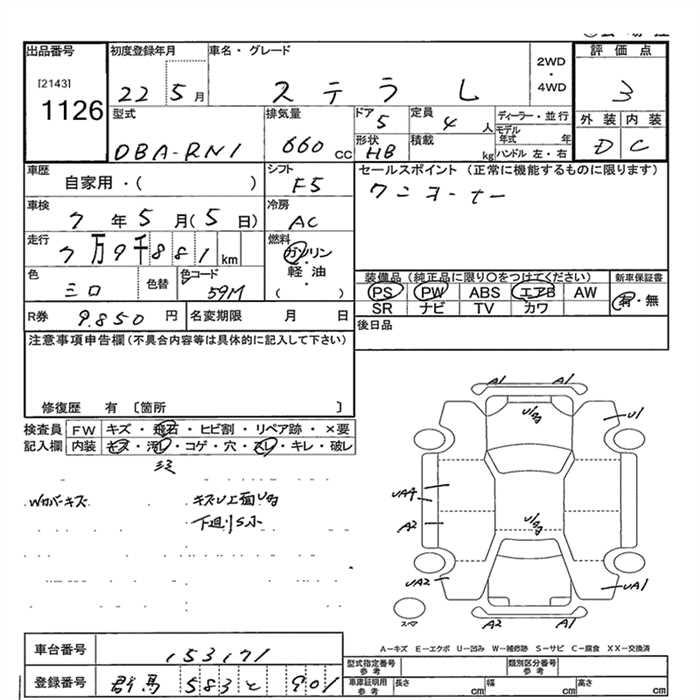 出品番号 初度登録年月 車名・グレード 2WD・4WD 評価点
[2143]
1126 22 5月 ステラ L 3
型式 排気量 ドア 5 定員 4人 ディーラー・並行 外装 内装
DBA-RN1 660cc 形状 HB 積載 kg モデル年式 年 ハンドル 左・右 D C
車歴 シフト セールスポイント (正常に機能するものに限ります)
自家用・( ) F5 ワンオーナー
車検 冷房
7年5月(5日) AC
走行 燃料
7万9千881km ガソリン・軽油 ( ・ )
装備品 (純正品に限り○をつけてください) 新車保証書
色 シロ 色替 色コード 59M
PS PW ABS エアB AW 有・無
SR ナビ TV カワ
R券 9.850円 名変期限 月 日
後日品
注意事項申告欄(不具合内容等は具体的に記入して下さい)
修復歴 有 〔箇所 〕
検査員 FW キズ・飛石・ヒビ割・リペア跡・×要
記入欄 内装 キズ・汚レ・コゲ・穴・スレ・キレ・破レ
Wカバーキズ
下廻りS小
A1 A1
U1
UA4
A2
UA2 UA1
A2 A1
スマ
A-キズ E-エクボ U-凹み W-補修跡 S-サビ C-腐食 XX-交換済
車台番号 153171
登録番号 群馬 583 と 901
型式指定番号 参考 類別区分番号 参考
車庫証明用 参考 長さ cm 幅 cm 高さ cm